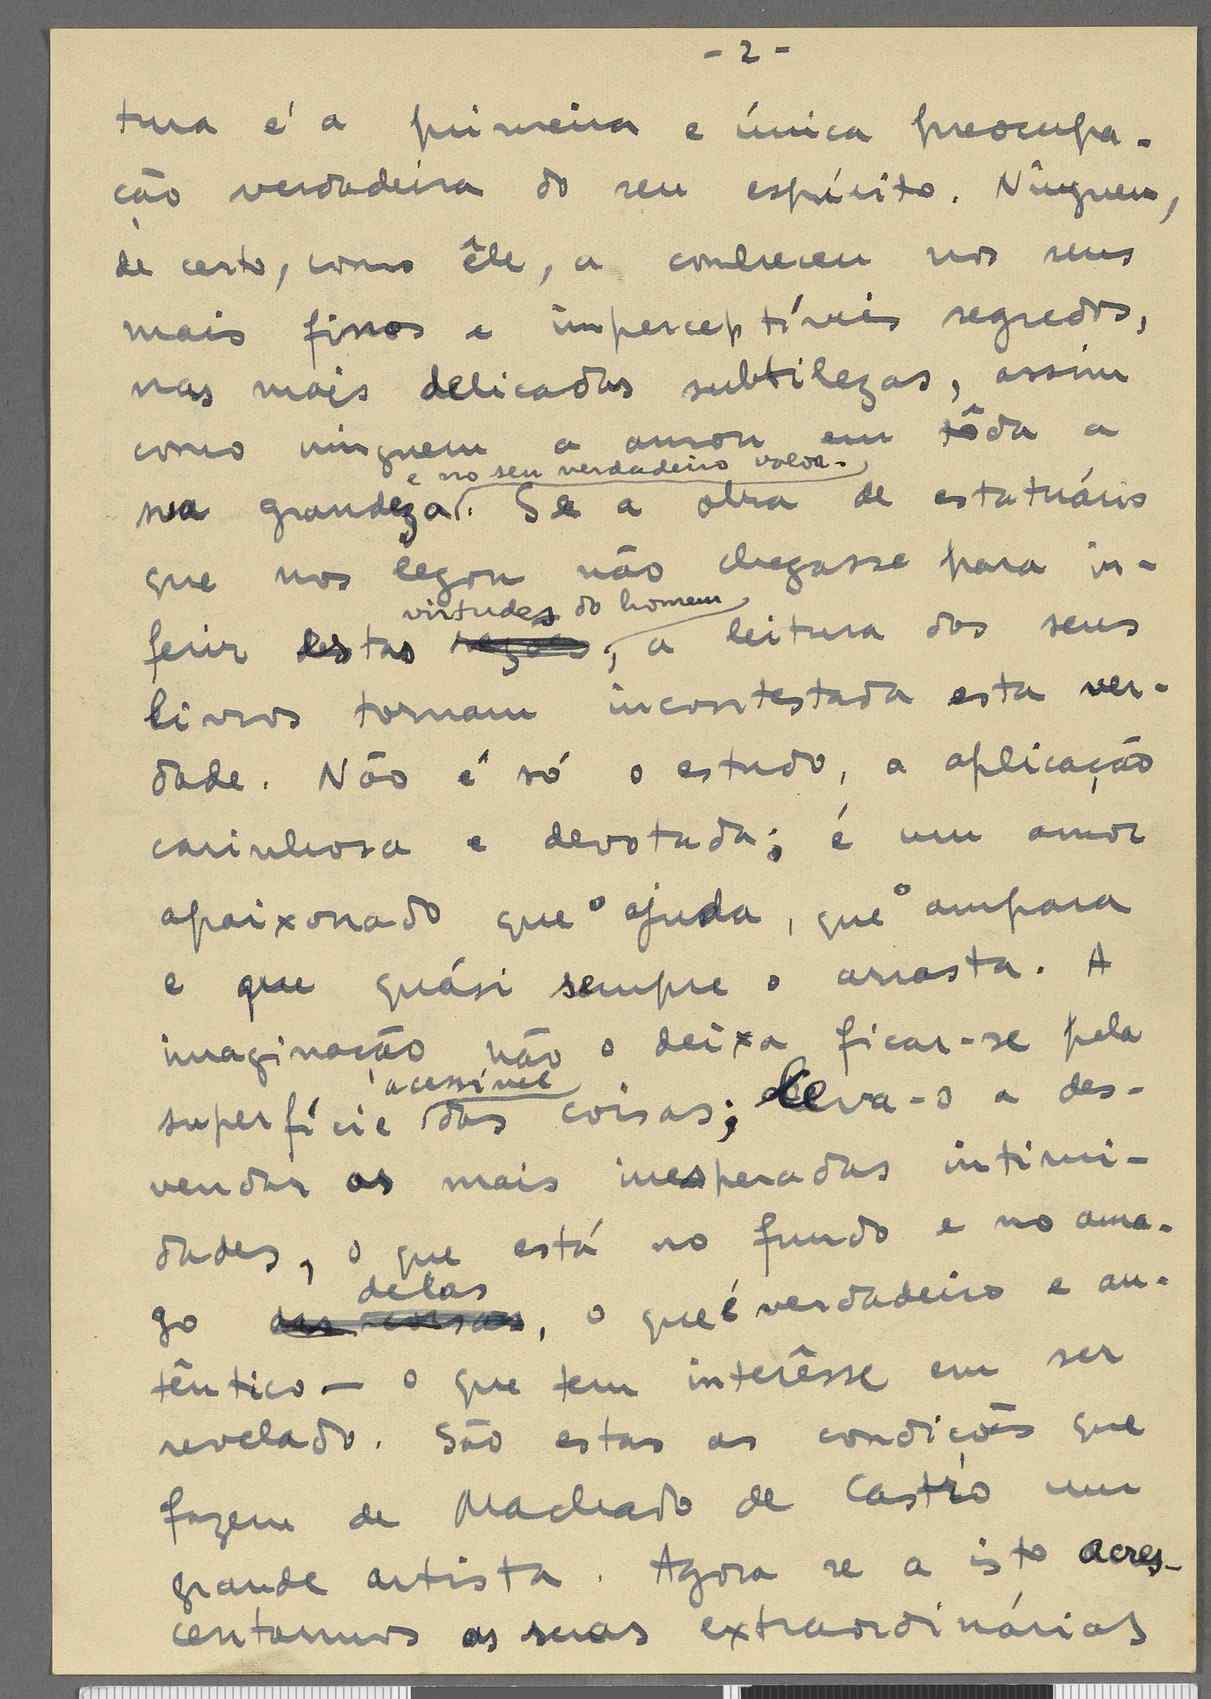 - 2 -
tura é a primeira e única preocupa-
ção verdadeira do seu espírito. Ninguem,
de certo, como êle, a conheceu nos seus
mais finos e imperceptíveis segredos,
nas mais delicadas subtilezas, assim
como ninguem a amou em tôda a
e no seu verdadeiro valor.
sua grandeza. Se a obra de estatuário
que nos legou não chegasse para in-
virtudes do homem
ferir estas razões, a leitura dos seus
livros tornam incontestada esta ver-
dade. Não é só o estudo, a aplicação
carinhosa e devotada; é um amor
apaixonado que o ajuda, que o ampara
e que quási sempre o arrasta. A
imaginação não o deixa ficar-se pela
acessível
superfície das coisas; leva-o a des-
vendar as mais inesperadas intimi-
dades, o que está no fundo e no ama-
delas
go das coisas, o que é verdadeiro e au-
têntico — o que tem interêsse em ser
revelado. São estas as condições que
fazem de Machado de Castro um
grande artista. Agora se a isto acres-
centarmos as suas extraordinárias